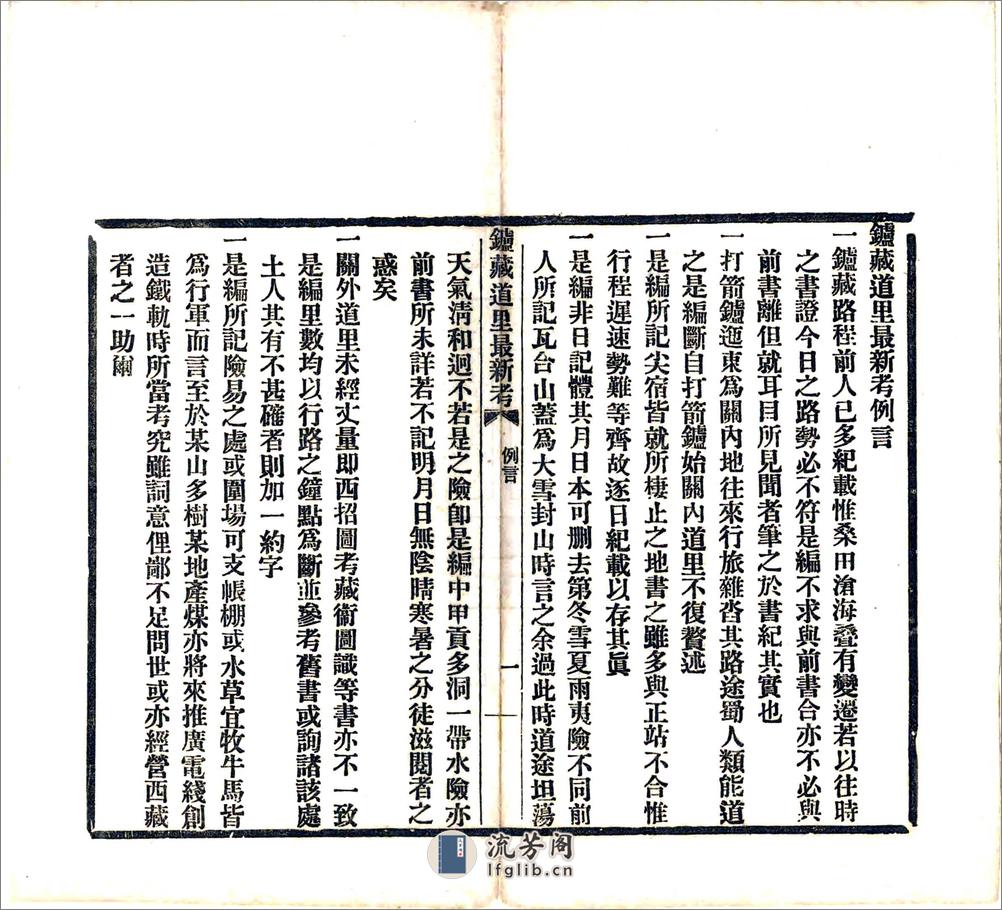 鑪藏道里最新考例言
一鑪藏路程前人已多紀載惟桑田滄海疊有變遷若以往時
之書證今日之路勢必不符是編不求與前書合亦不必與
前書離但就耳目所見聞者筆之於書紀其實也
一打箭鑪迤東爲關內地往來行旅雜沓其路途蜀人類能道
之是編斷自打箭鑪始關內道里不復贅述
一是編所記尖宿皆就所棲止之地書之雖多與正站不合惟
行程遲速勢難等齊故逐日紀載以存其眞
一是編非日記體其月日本可刪去第冬雪夏雨夷險不同前
人所記瓦合山蓋爲大雪封山時言之余過此時道途坦蕩
鑪藏道里最新考 例言 一
天氣淸和迥不若是之險卽是編中甲貢多洞一帶水險亦
前書所未詳若不記明月日無陰晴寒暑之分徒滋閱者之
惑矣
一關外道里未經丈量即西招圖考藏衞圖識等書亦不一致
是編里數均以行路之鐘點爲斷並參考舊書或詢諸該處
土人其有不甚確者則加一約字
一是編所記險易之處或圍場可支帳棚或水草宜牧牛馬皆
爲行軍而言至於某山多樹某地產煤亦將來推廣電綫創
造鐵軌時所當考究雖詞意俚鄙不足問世或亦經營西藏
者之一助爾
流芳阁
lfglib.cn